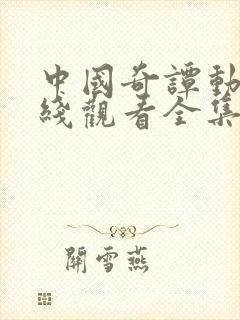 中國奇譚動
綫觀看全集
開雪燕